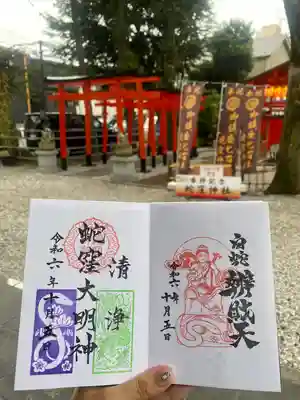 蛇窪大明神
清浄
令和六年十月五日
白蛇辨財天
令和六年十月五日
蛇窪神社